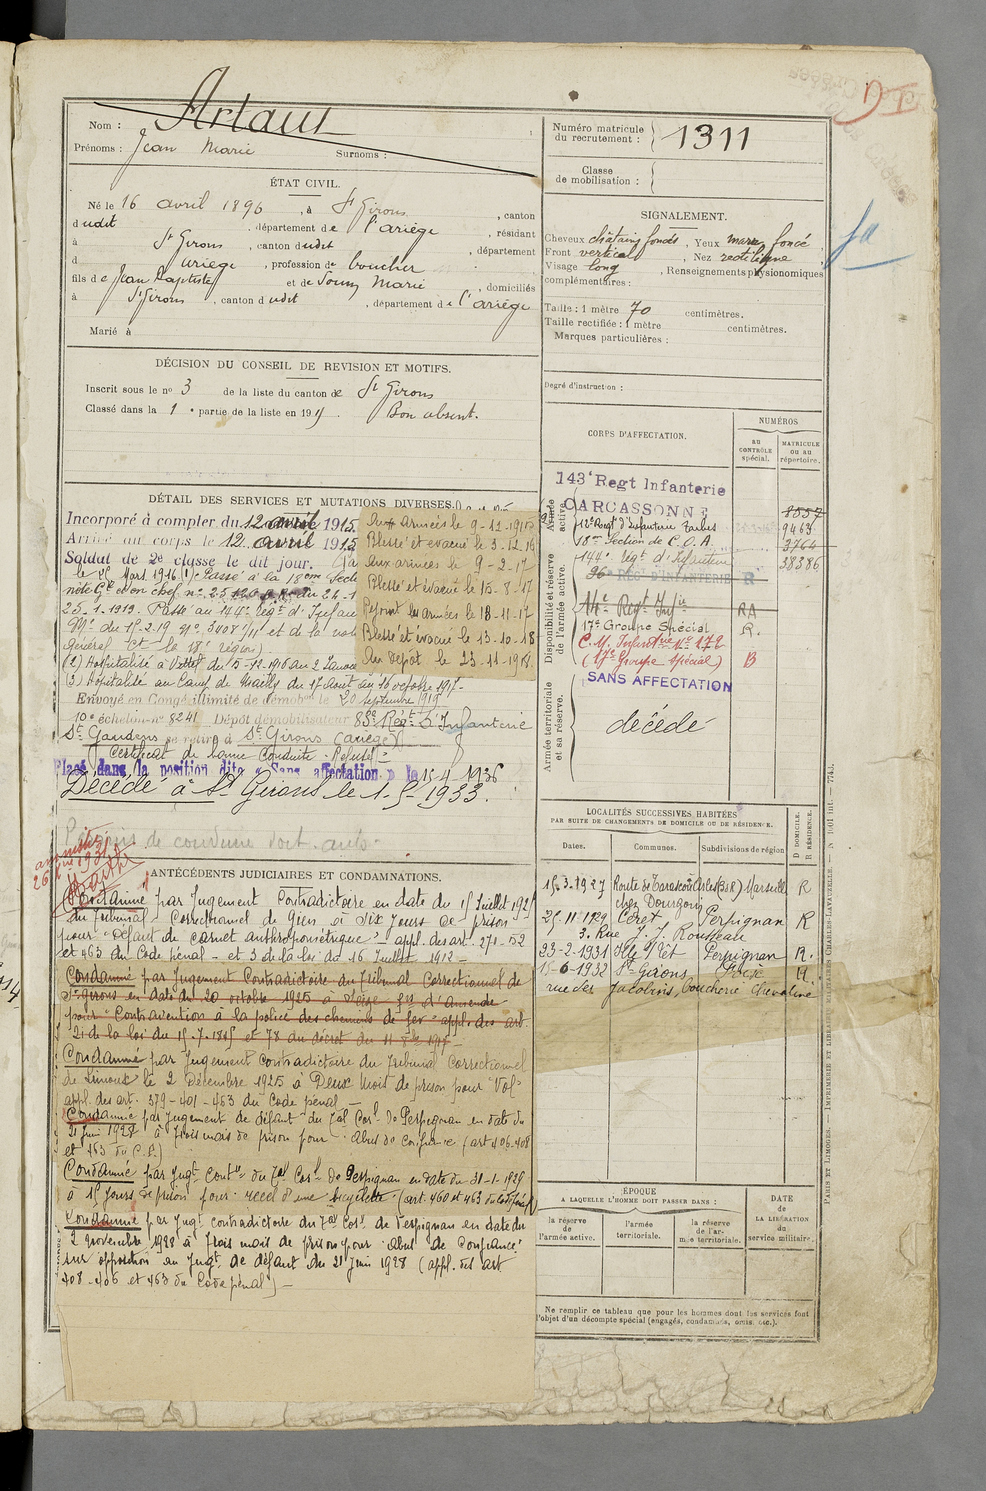 Nom : Artaud
Prénoms : Jean Marie Surnoms :
ÉTAT CIVIL.
Né le 16 avril 1896, à St Girons, canton
dudit, département de l'Ariège, résidant
à St Girons, canton dudit, département
d Ariège, profession de boucher
fils de Jean Baptiste et de Soum Marie, domiciliés
à St Girons, canton dudit, département de l'Ariège
Marié à
DÉCISION DU CONSEIL DE REVISION ET MOTIFS.
Inscrit sous le no 3 de la liste du canton de St Girons
Classé dans la 1e partie de la liste en 1915. Bon absent.
DÉTAIL DES SERVICES ET MUTATIONS DIVERSES.
Incorporé à compter du 12 avril 1915
Arrivé au corps le 12 avril 1915
Soldat de 2e classe le dit jour.
le 25 Mars 1916 (1) Passé à la 18em
note Gl et on chef no 25
25.1.1919. Passé au 144e régt d'Infan
Ml du 15.2.19 no 3408 1/11 et de la
général Ct la 18e région)
(2) Hospitalisé à Vittel du 5-12-1916 au 2
(3) Hospitalisé au Camp de Mailly du 17 août au 16 octobre 1917.
Envoyé en Congé illimité de démob le 20 septembre 1919
10e échelon no 8241 Dépôt démobilisateur 83e Régt d'Infanterie
St Gaudens se retire à St Girons (Ariège)
Certificat de bonne Conduite "Refusé"
Placé dans la position dite « Sans affectation » le 15-4-1936
Décédé à St Girons le 1-5-1933.
Aux armées le 9-12-1915
Blessé et évacué le 3-12-16
Aux armées le 9-2-17
Blessé et évacué le 15-8-17
Rejoint les armées le 18-11-17
Blessé et évacué le 13-10-18
Au dépôt le 23-11-1918.
Permis de conduire voit. auto.
amnistie
ANTÉCÉDENTS JUDICIAIRES ET CONDAMNATIONS.
Condamné par Jugement Contradictoire en date du 15 Juillet 1925
du Tribunal Correctionnel de Gien à Six Jours de prison
pour "Défaut de carnet anthropométrique" appl. des art. 271-52
et 463 du Code pénal et 3 de la loi du 16 Juillet 1912
Condamné par Jugement Contradictoire du Tribunal Correctionnel de
St Girons en date du 20 octobre 1925 à Seize frs d'amende
pour "Contravention à la police des chemins de fer" appl. des art.
21 de la loi du 15.7.1845 et 78 du décret du 11 9bre 1917
Condamné par Jugement Contradictoire du Tribunal Correctionnel
de Limoux le 2 Décembre 1925 à Deux Mois de prison pour "Vol"
appl. des art. 379-401-463 du Code pénal
Condamné par Jugement de défaut du Tal Corl de Perpignan en date du
21 Juin 1928 à trois mois de prison pour Abus de Confiance (art 406-408
et 463 du C.P.)
Condamné par Jugt Contre du Tal Corl de Perpignan en date du 31-1-1929
à 15 jours de prison pour recel d'une bicyclette (art. 460 et 463 du Code pénal)
Condamné par Jugt contradictoire du Tal Corl de Perpignan en date du
2 novembre 1928 à trois mois de prison pour "Abus de Confiance"
sur opposition au Jugt de défaut du 21 Juin 1928 (appl. des art
408-406 et 463 du Code pénal)
Numéro matricule
du recrutement : 1311
Classe
de mobilisation :
SIGNALEMENT.
Cheveux châtains foncés, Yeux marr. foncé
Front vertical, Nez rectiligne
Visage long, Renseignements physionomiques
complémentaires :
Taille : 1 mètre 70 centimètres.
Taille rectifiée : 1 mètre centimètres.
Marques particulières :
Degré d'instruction :
CORPS D'AFFECTATION.
NUMÉROS
AU CONTRÔLE spécial.
MATRICULE OU AU répertoire.
Armée active.
143e Regt Infanterie
CARCASSONNE 8557
12e Régt d'Infanterie Tarbes 9463
18me Section de C.O.A. 3764
144e régt d'Infanterie 38386
Disponibilité et réserve de l'armée active.
96e REGt D'INFANTERIE R
14e Regt Infie RA
17e Groupe Spécial R.
C. M. Infanterie No 172
(17e Groupe Spécial) B
SANS AFFECTATION
Armée territoriale et sa réserve.
décédé
LOCALITÉS SUCCESSIVES HABITÉES
PAR SUITE DE CHANGEMENTS DE DOMICILE OU DE RÉSIDENCE.
Dates. Communes. Subdivisions de région
D DOMICILE. R RÉSIDENCE.
15.3.1927 Route de Tarascon Arles (BdR) Marseille R
chez Dourgon
25.11.1929 Céret Perpignan R
3. Rue J. J. Rousseau
23-2-1931 Ille s/ Têt Perpignan R.
15-6-1932 St Girons Foix R
rue des Jacobins, boucherie chevaline
ÉPOQUE
A LAQUELLE L'HOMME DOIT PASSER DANS :
la réserve de l'armée active.
l'armée territoriale.
la réserve de l'armée territoriale.
DATE DE LA LIBÉRATION du service militaire.
Ne remplir ce tableau que pour les hommes dont les services font
l'objet d'un décompte spécial (engagés, condamnés, omis, etc.).
PARIS ET LIMOGES. — IMPRIMERIE ET LIBRAIRIE MILITAIRES CHARLES-LAVAUZELLE.